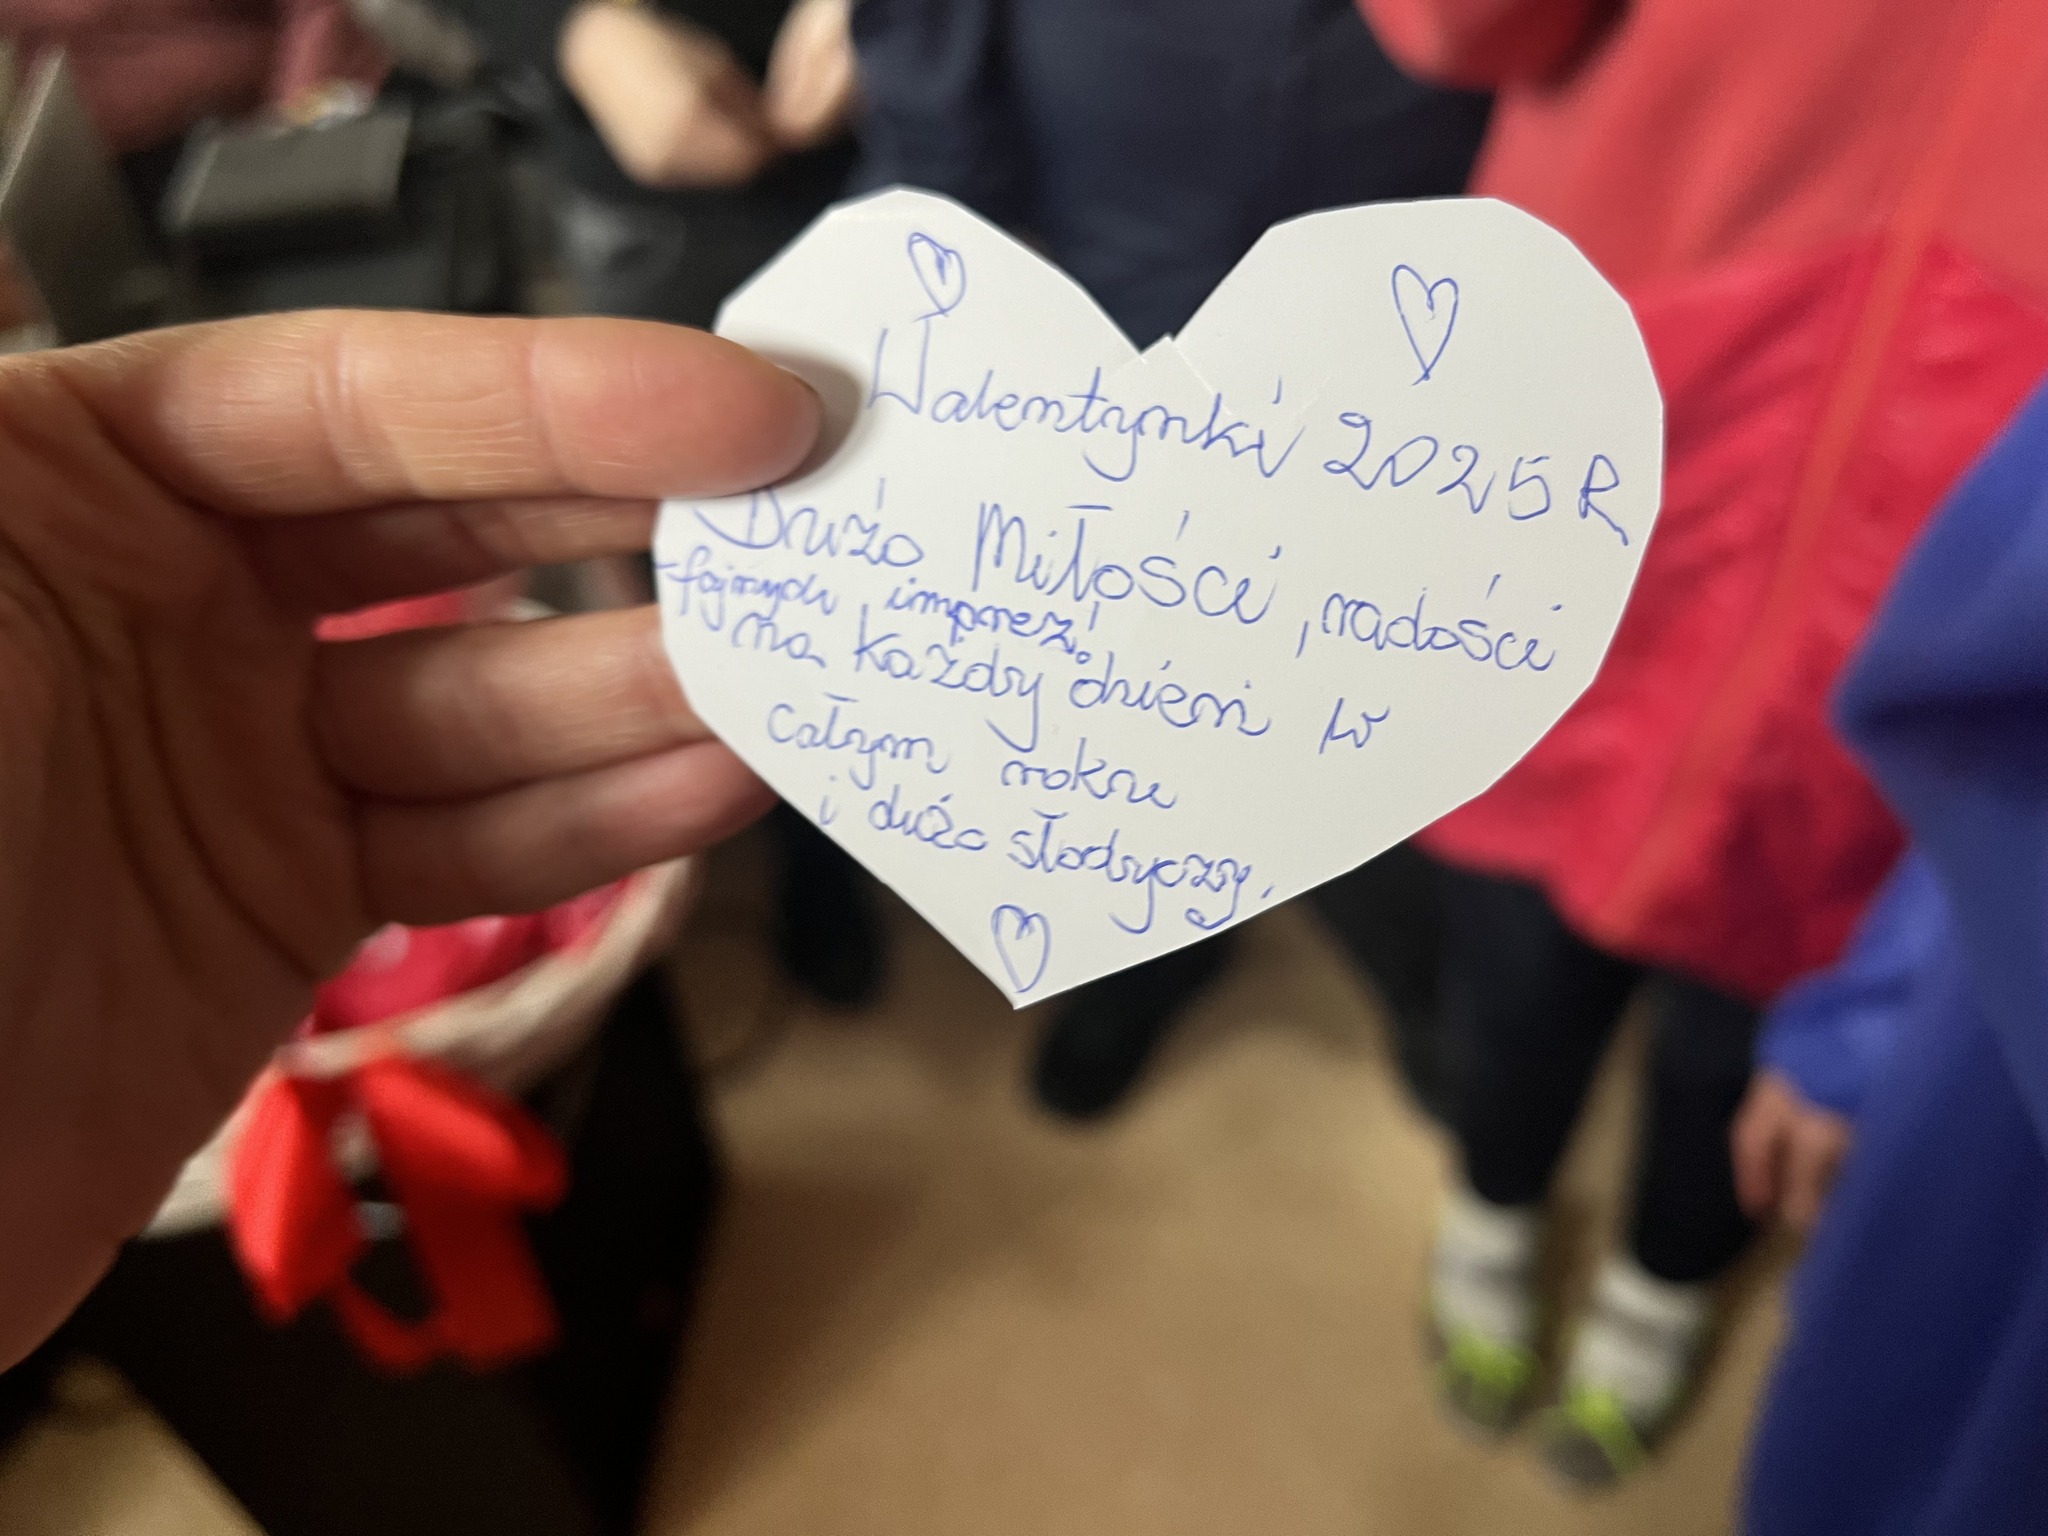 Walentynki 2025R
Dużo Miłości, radości
fajnych imprez!
na każdy dzień w
całym roku
i dużo słodyczy.